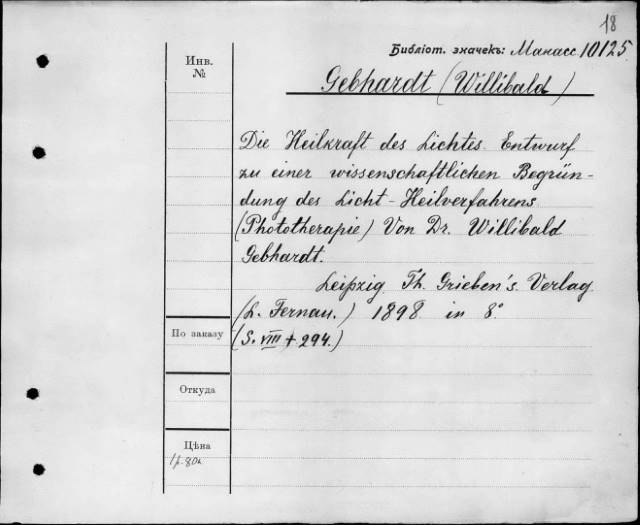 18
Библіот. значекъ: Манасс. 10125
Инв.
№
Gebhardt (Willibald)
Die Heilkraft des Lichtes. Entwurf
zu einer wissenschaftlichen Begrün-
dung des Licht-Heilverfahrens
(Phototherapie) Von Dr. Willibald
Gebhardt.
Leipzig. Th. Grieben's Verlag
(L. Fernau.) 1898 in 8°
По заказу
(S. VIII + 294.)
Откуда
Цѣна
1р. 80к